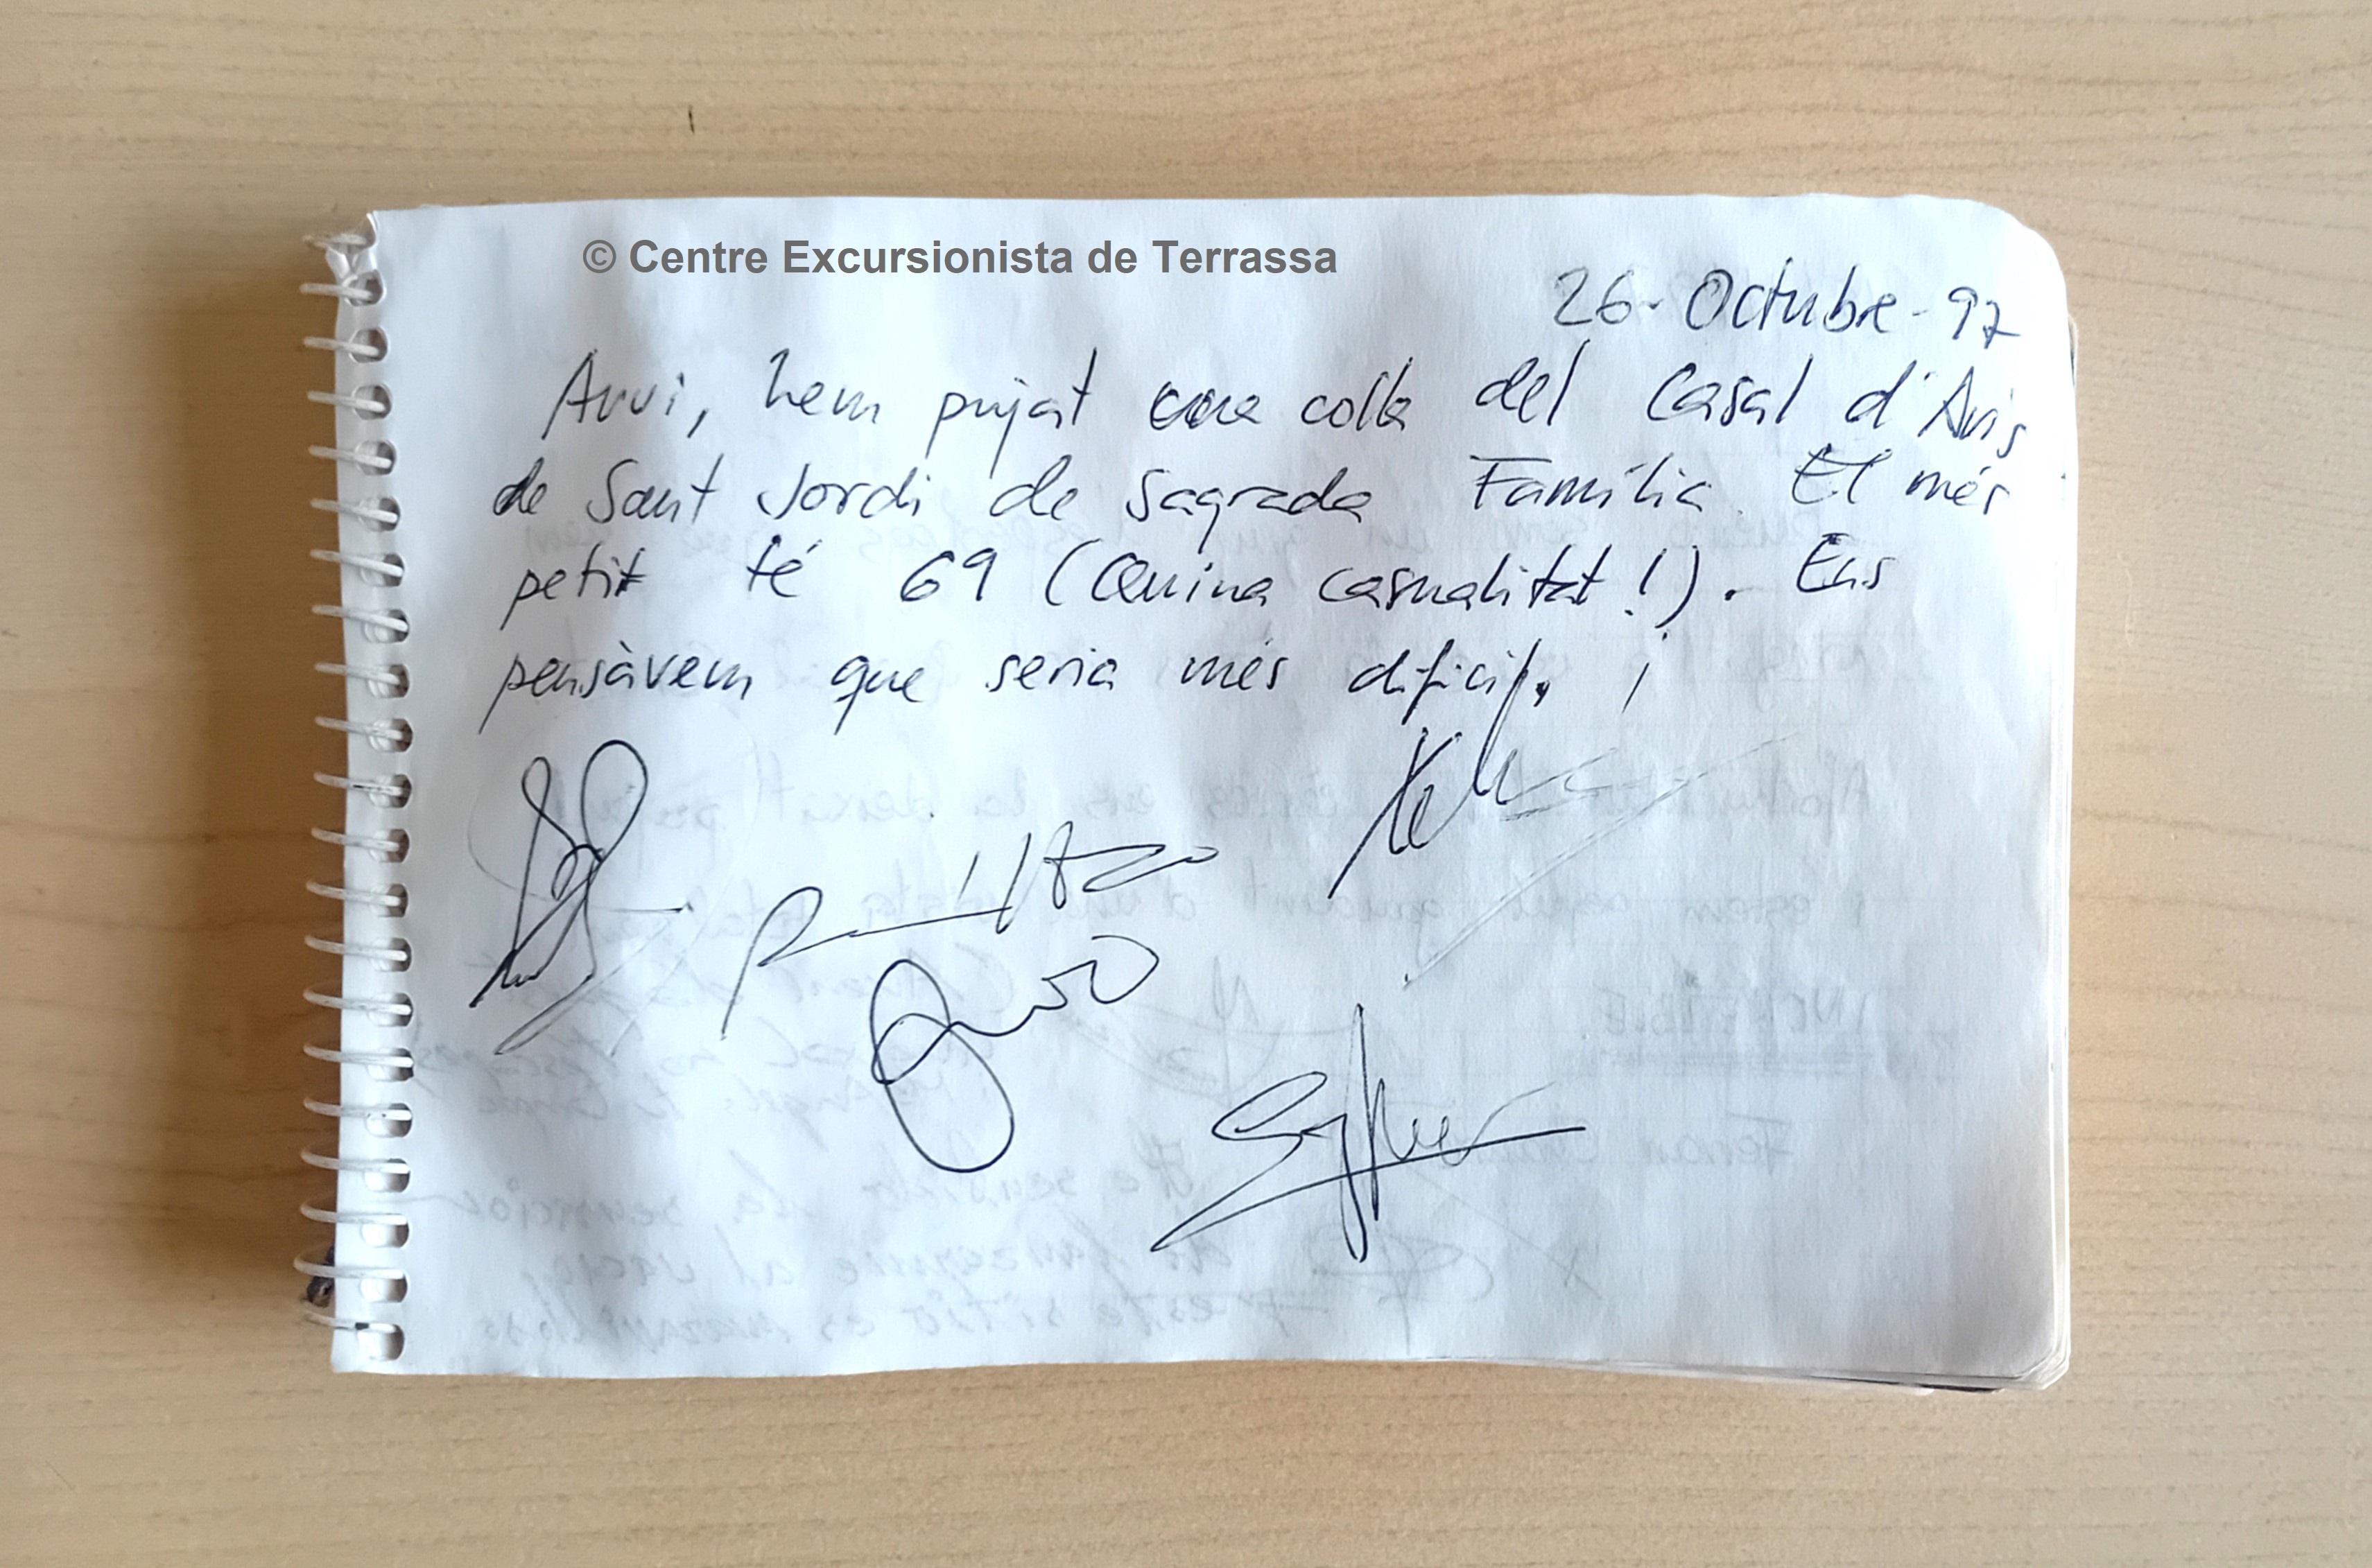 © Centre Excursionista de Terrassa
26-Octubre-97
Avui, hem pujat una colla del Casal d'Avis
de Sant Jordi de Sagrada Família. El més
petit té 69 (Quina casualitat!). Ens
pensàvem que seria més dificil.